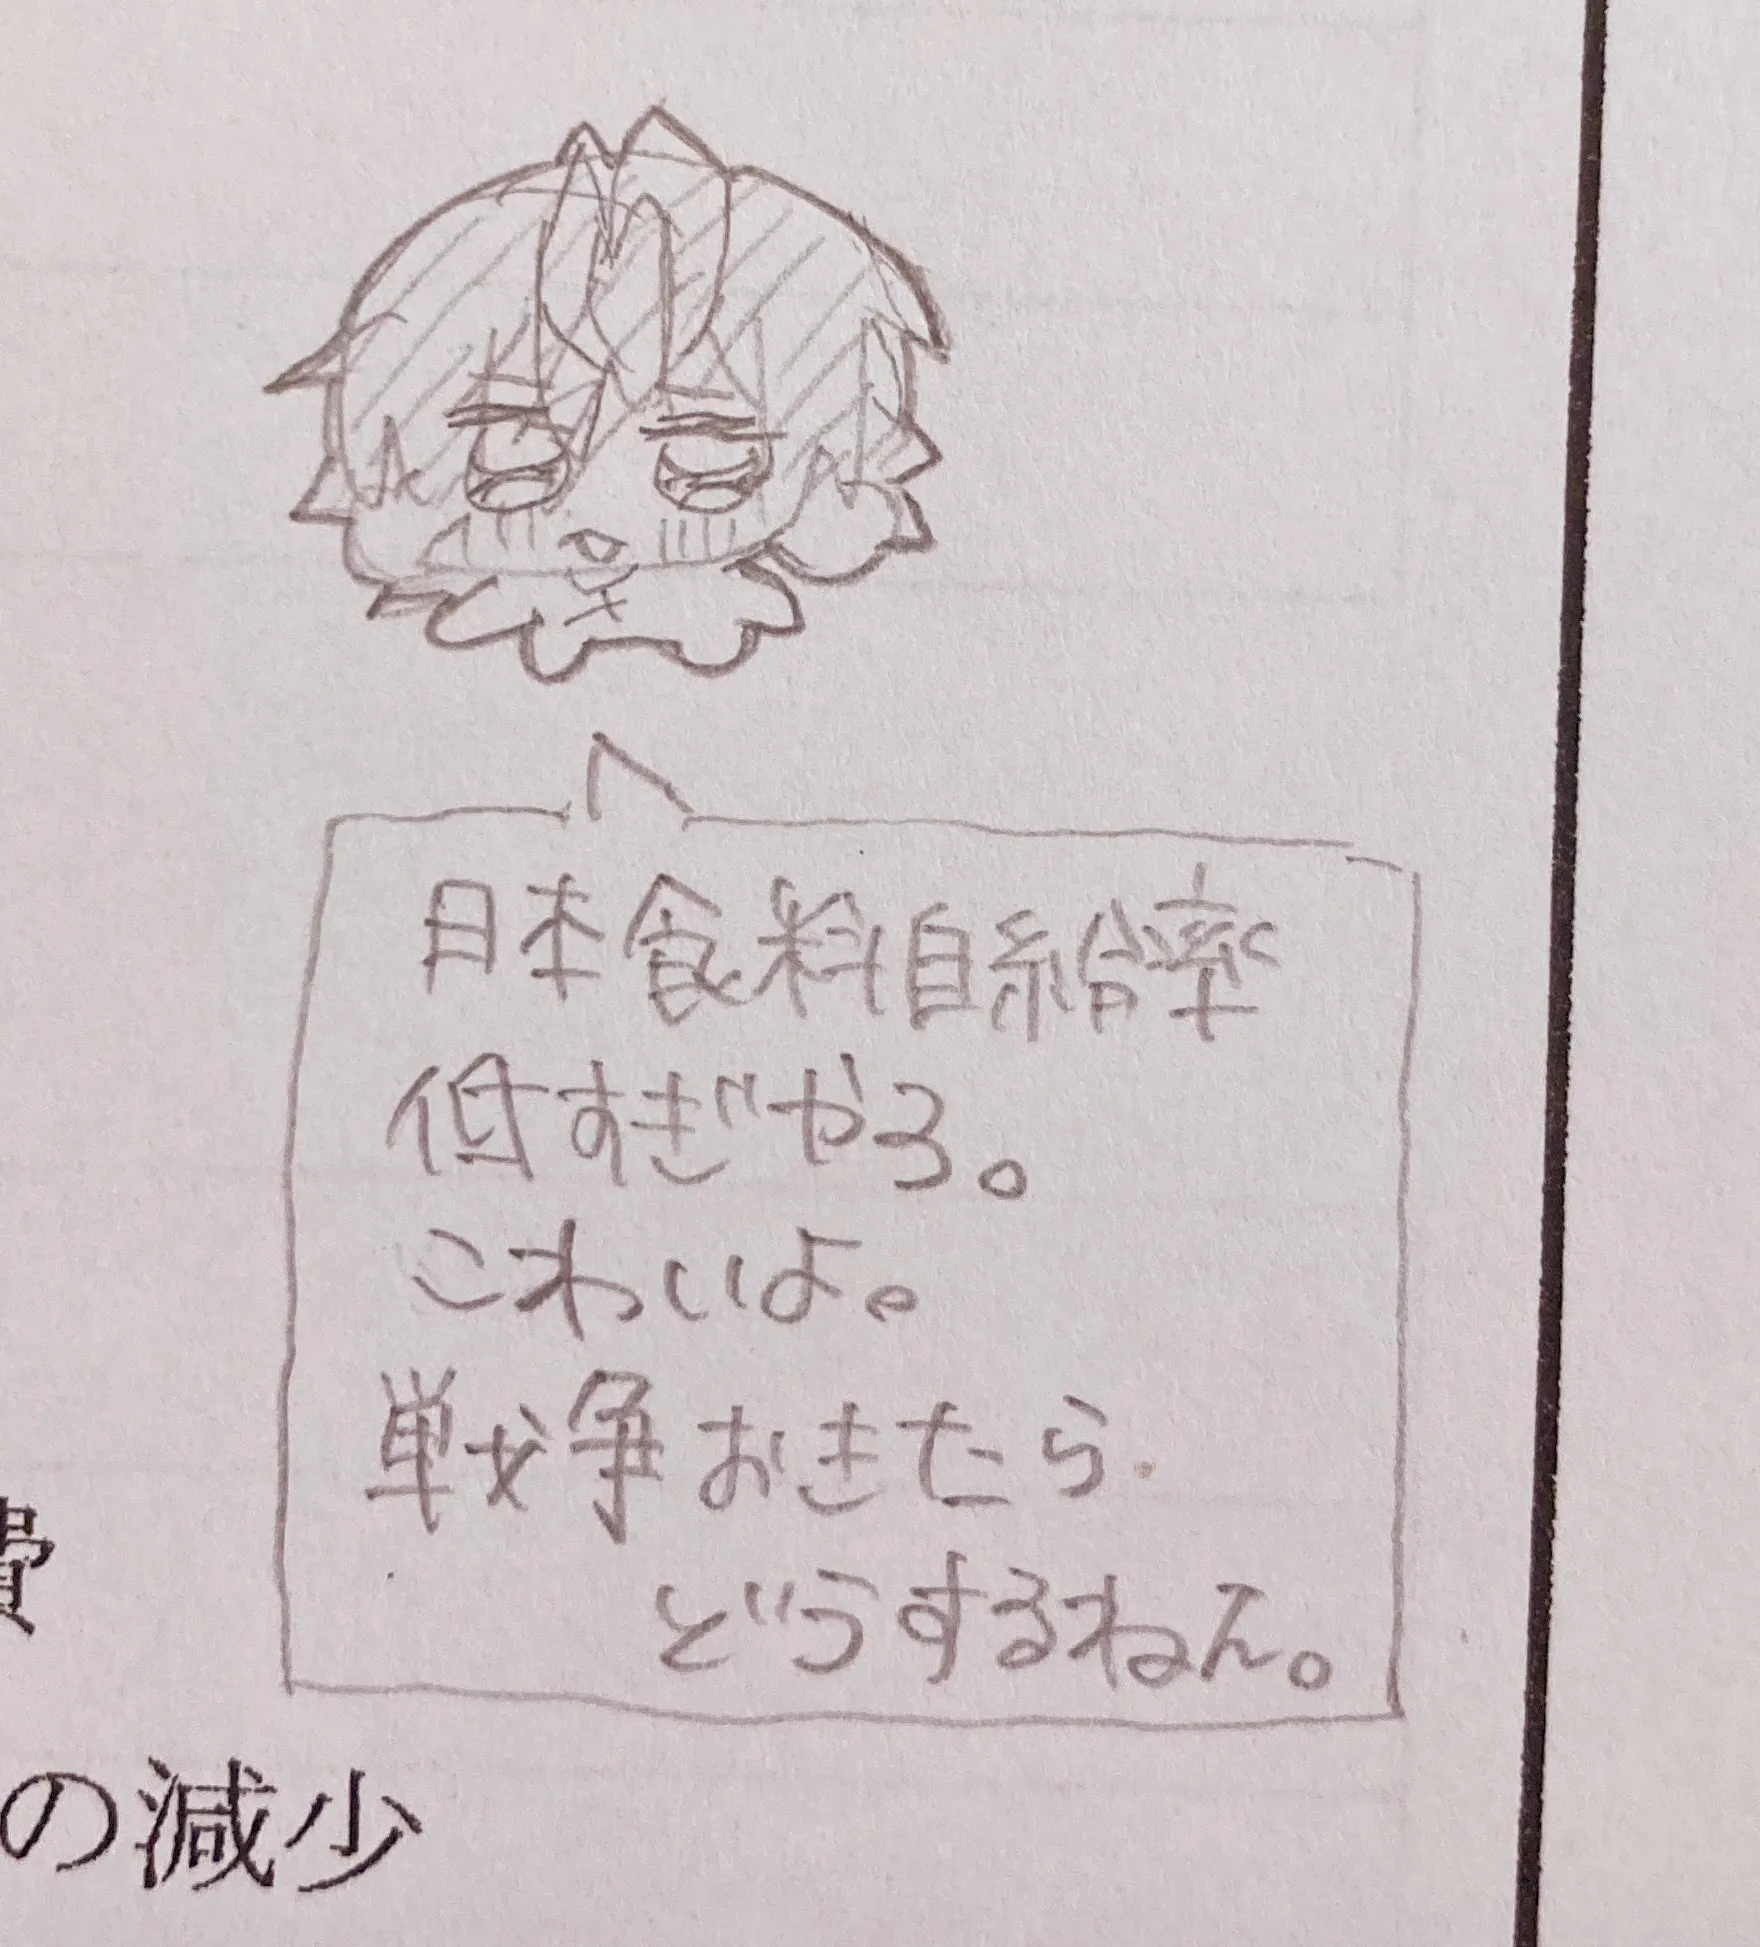 日本食料自給率
低すぎやろ。
こわいよ。
戦争おきたら
どうするねん。
費
の減少